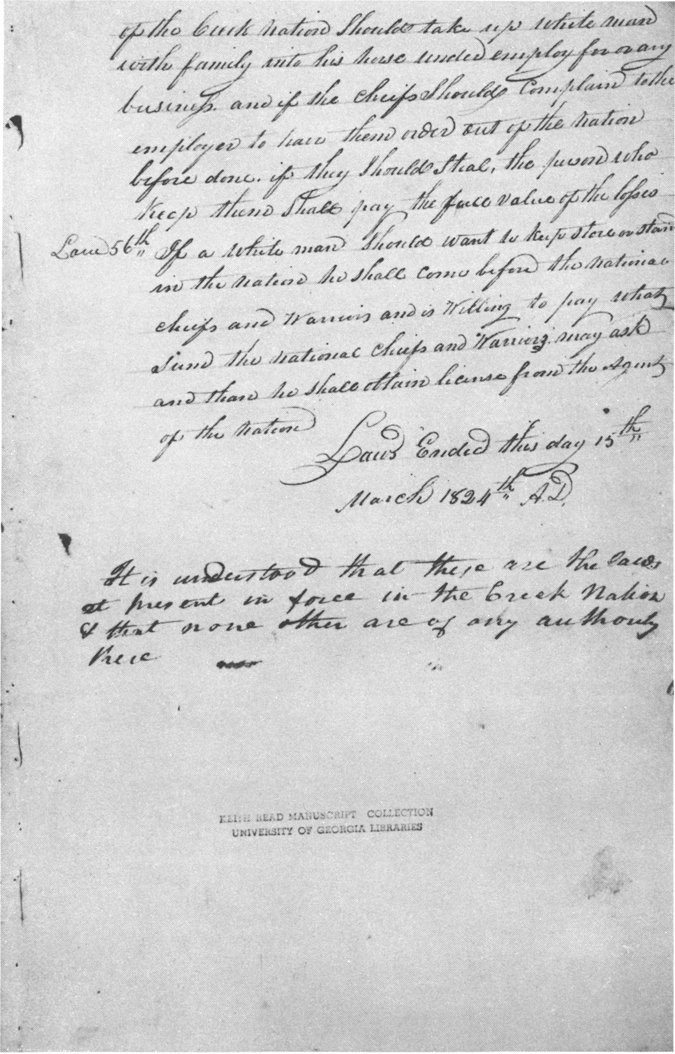 of the Creek Nation Should take up white man
with family into his hous under employ for or any
business and if the chiefs Should Complain to the
employer to have them order out of the nation
before done. if they Should Steal, the person who
Keep them Shall pay the full value of the losses
Law 56th If a white man Should want to Keep store or stand
in the nation he shall come before the national
chiefs and Warriors and is Willing to pay what
the national chiefs and Warriors may ask
and than he shall obtain license from the Agent
of the Nation
Laws Ended this day 15th
March 1824th A.D.
It is understood that these are the laws
at present in force in the Creek Nation
& that none other are of any authority
there
KEITH READ MANUSCRIPT COLLECTION
UNIVERSITY OF GEORGIA LIBRARIES